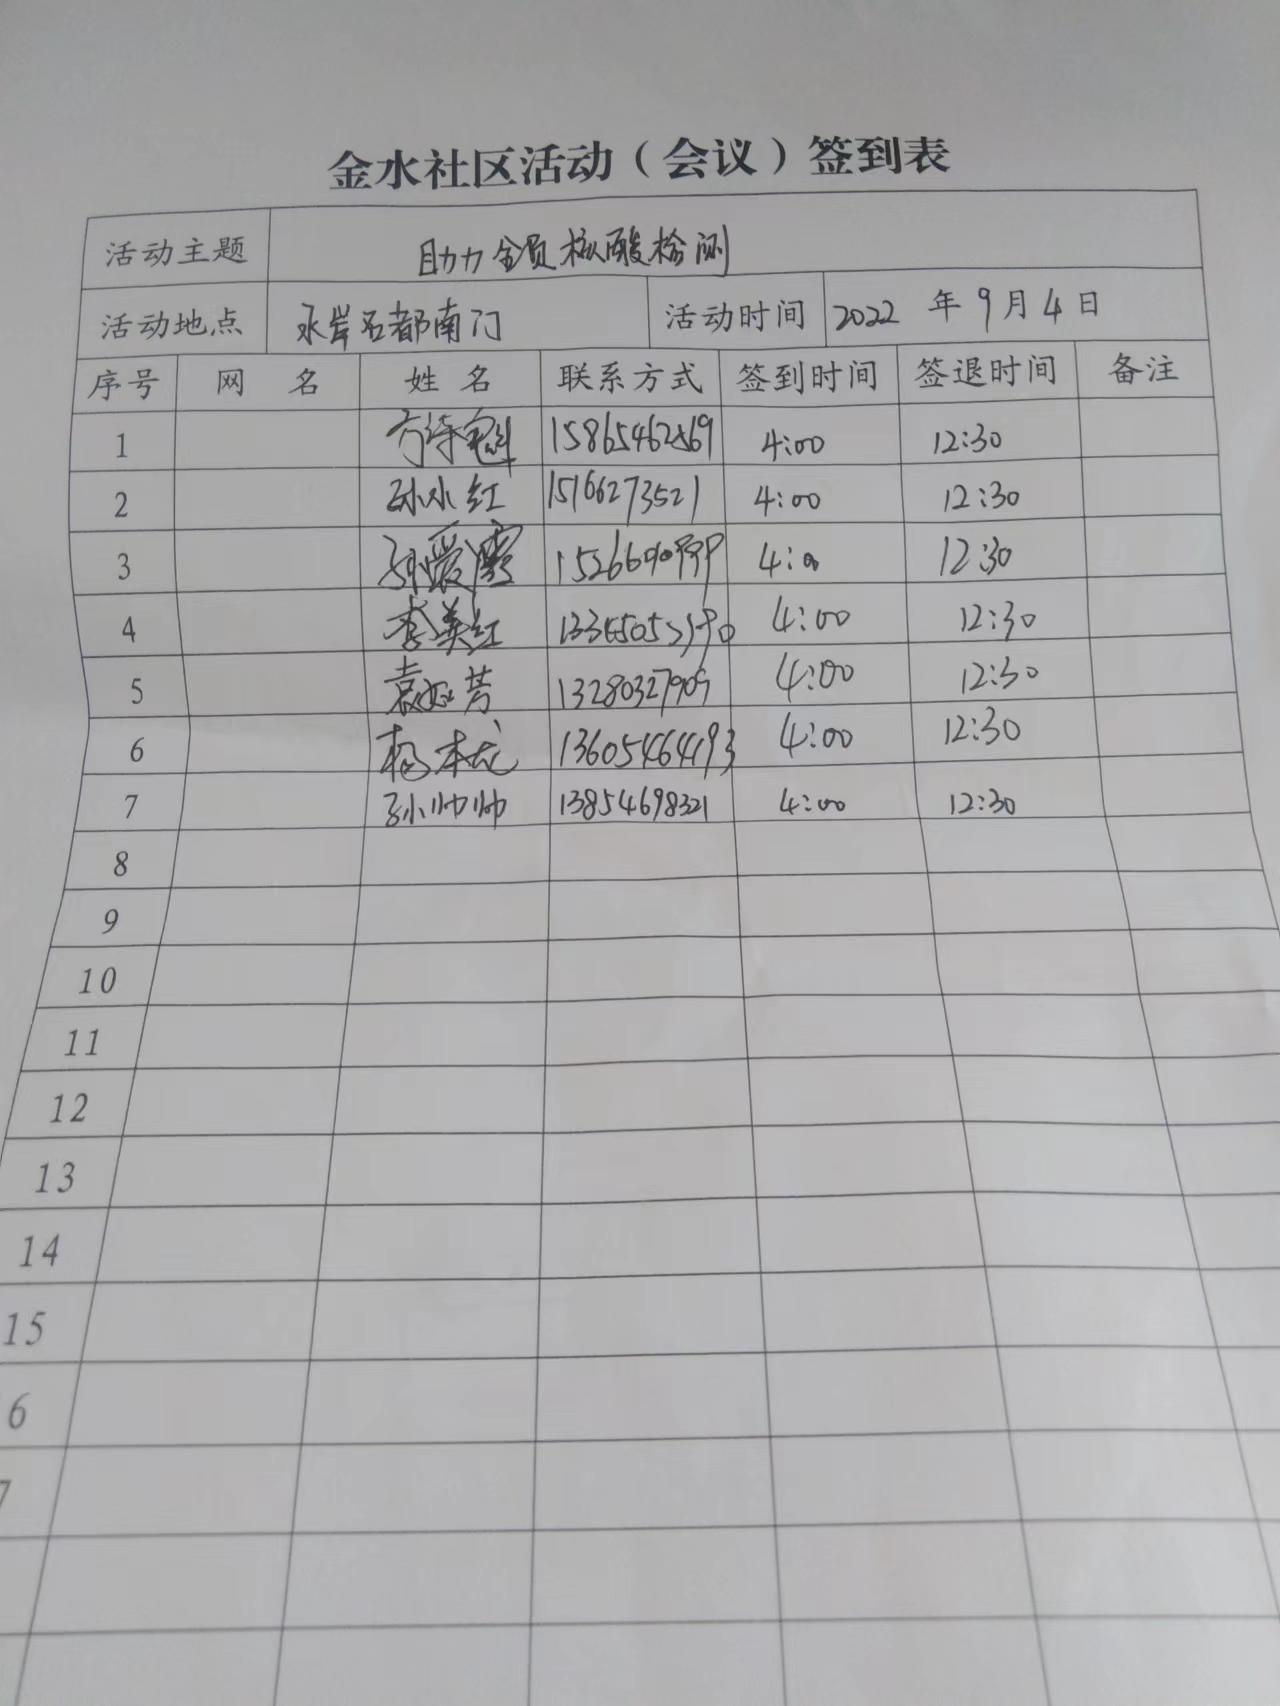 金水社区活动（会议）签到表
活动主题 助力全员核酸检测
活动地点 水岸名都南门 活动时间 2022 年 9月 4 日
序号 网 名 姓 名 联系方式 签到时间 签退时间 备注
1 15865462569 4:00 12:30
2 孙水红 15166273521 4:00 12:30
3 孙爱霞 12:30
4 李美红 4:00 12:30
5 13280327909 4:00 12:30
6 杨本龙 13605464193 4:00 12:30
7 孙帅帅 13854698321 4:00 12:30
8
9
10
11
12
13
14
15
6
7